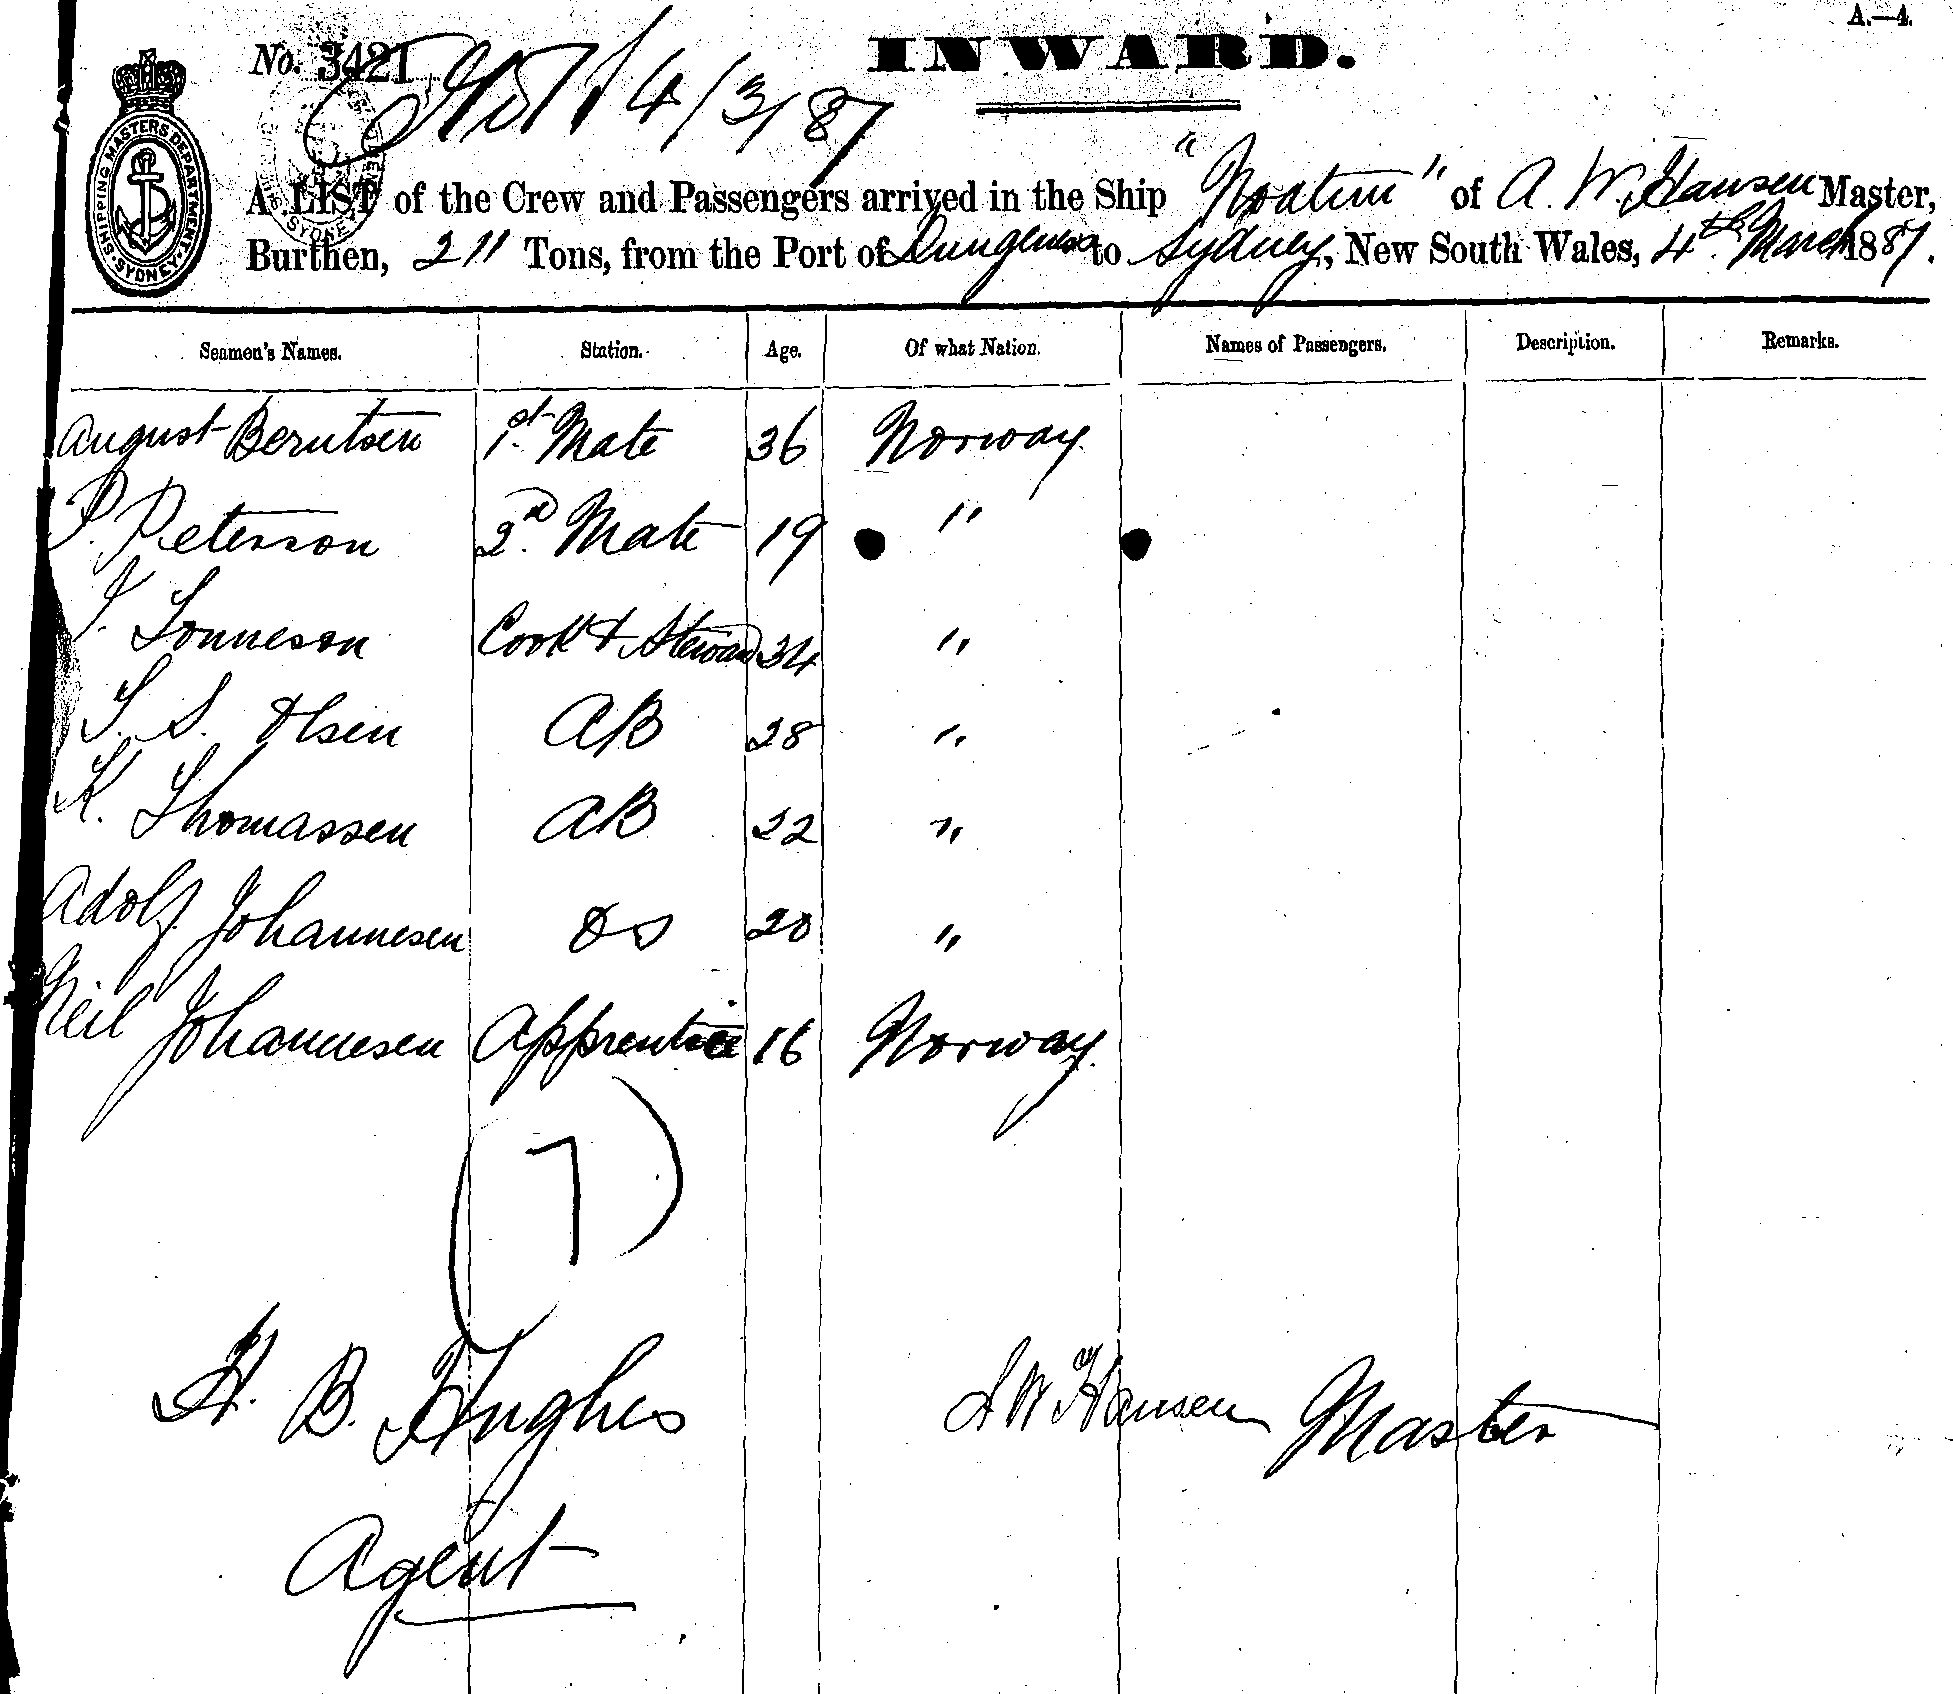 A.—4.
No. 3421
INWARD.
4/3/87
SHIPPING MASTERS DEPARTMENT SYDNEY
A LIST of the Crew and Passengers arrived in the Ship "Noatun" of A. W. Hansen Master,
Burthen, 211 Tons, from the Port of Dungeness to Sydney, New South Wales, 4th March 1887.
Seamen's Names. Station. Age. Of what Nation. Names of Passengers. Description. Remarks.
August Berntsen 1st Mate 36 Norway
P. Peterson 2d Mate 19 "
J. Tonneson Cook & Steward 34 "
T. S. Olsen AB 28 "
K. Thomassen AB 22 "
Adolf Johannesen OS 20 "
Neil Johannesen Apprentice 16 Norway
(7)
H. B. Hughes A W Hansen Master
Agent